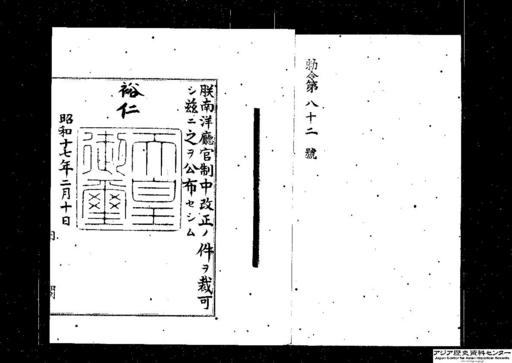 勅令第八十二號
朕南洋廳官制中改正ノ件ヲ裁可
シ茲ニ之ヲ公布セシム
裕仁
天皇御璽
昭和十七年二月十日
内閣
アジア歴史資料センター
Japan Center for Asian Historical Records